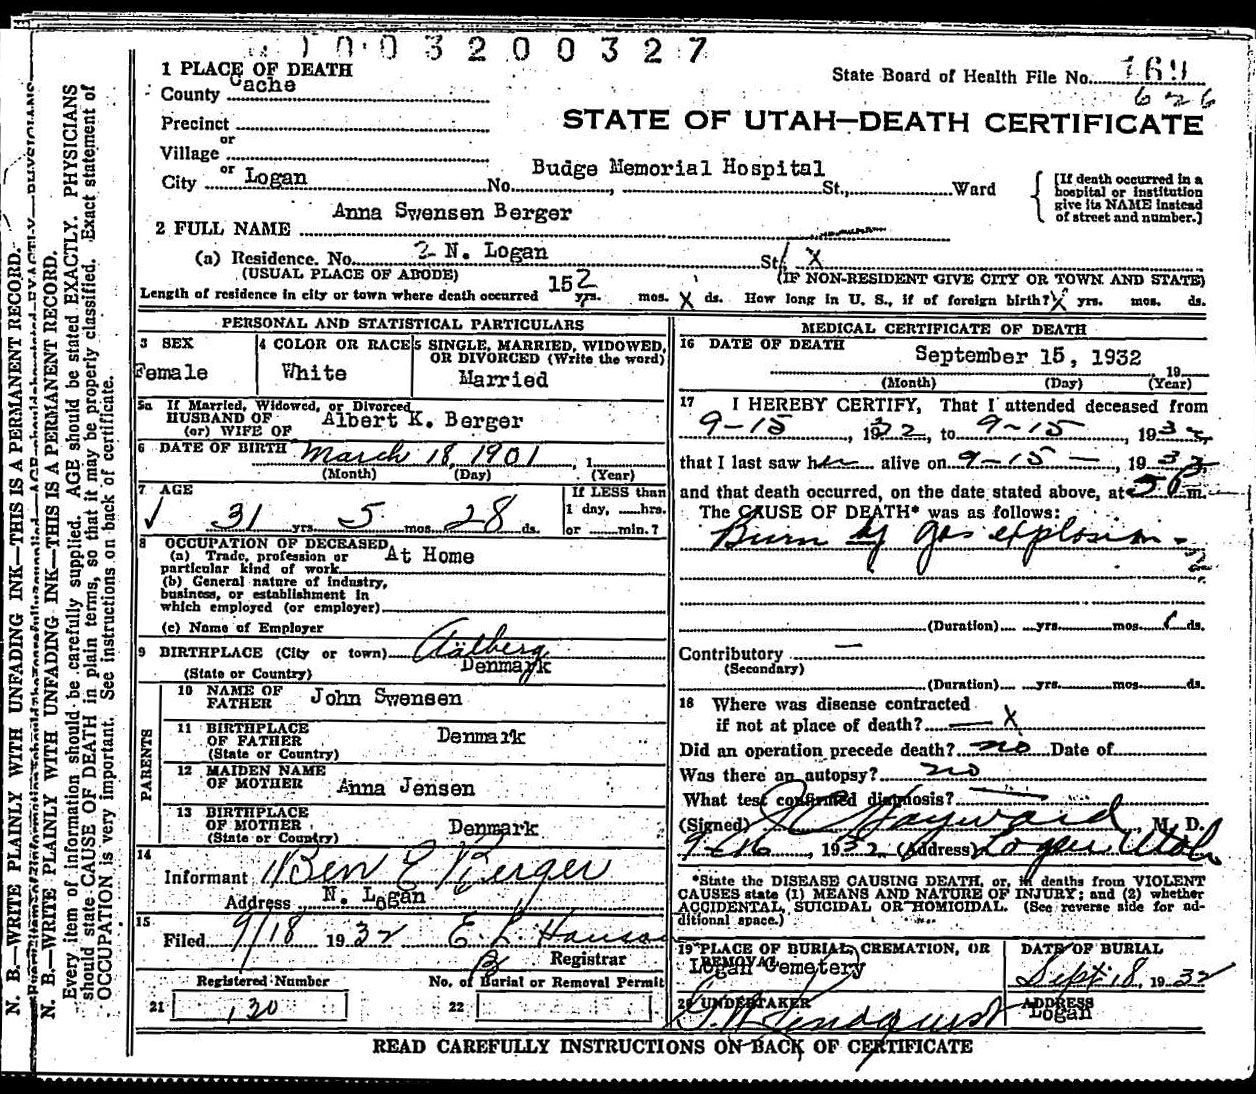 1003200327
1 PLACE OF DEATH
State Board of Health File No. 169
County Cache
626
STATE OF UTAH—DEATH CERTIFICATE
Precinct
or
Village
or
City Logan No. Budge Memorial Hospital St., Ward
[If death occurred in a
hospital or institution
give its NAME instead
of street and number.]
2 FULL NAME Anna Swensen Berger
(a) Residence. No. 2 N. Logan St. X
(USUAL PLACE OF ABODE) (IF NON-RESIDENT GIVE CITY OR TOWN AND STATE)
Length of residence in city or town where death occurred 152 yrs. mos. X ds. How long in U. S., if of foreign birth? X yrs. mos. ds.
PERSONAL AND STATISTICAL PARTICULARS
3 SEX 4 COLOR OR RACE 5 SINGLE, MARRIED, WIDOWED,
OR DIVORCED (Write the word)
Female White Married
5a If Married, Widowed, or Divorced
HUSBAND OF Albert K. Berger
(or) WIFE OF
6 DATE OF BIRTH March 18, 1901, 1
(Month) (Day) (Year)
7 AGE If LESS than
1 day, hrs.
31 yrs. 5 mos. 28 ds. or min.?
8 OCCUPATION OF DECEASED
(a) Trade, profession or At Home
particular kind of work
(b) General nature of industry,
business, or establishment in
which employed (or employer)
(c) Name of Employer
9 BIRTHPLACE (City or town) Aalberg
Denmark
(State or Country)
PARENTS
10 NAME OF
FATHER John Swensen
11 BIRTHPLACE
OF FATHER Denmark
(State or Country)
12 MAIDEN NAME
OF MOTHER Anna Jensen
13 BIRTHPLACE
OF MOTHER Denmark
(State or Country)
14
Informant Ben E Berger
Address N. Logan
15
Filed 9/18 1932 E. L. Hanson
Registrar
Registered Number No. of Burial or Removal Permit
21 130 22
MEDICAL CERTIFICATE OF DEATH
16 DATE OF DEATH
September 15, 1932
19
(Month) (Day) (Year)
17 I HEREBY CERTIFY, That I attended deceased from
9-15, 1932, to 9-15, 1932
that I last saw her alive on 9-15-, 1932
and that death occurred, on the date stated above, at 5 P m.
The CAUSE OF DEATH* was as follows:
Burn by gas explosion-
(Duration) yrs. mos. 1 ds.
Contributory —
(Secondary)
(Duration) yrs. mos. ds.
18 Where was disease contracted
if not at place of death? — X
Did an operation precede death? no Date of
Was there an autopsy? no
What test confirmed diagnosis? —
(Signed) Hayward M. D.
1932 (Address) Logan Utah
*State the DISEASE CAUSING DEATH, or, in deaths from VIOLENT
CAUSES state (1) MEANS AND NATURE OF INJURY; and (2) whether
ACCIDENTAL, SUICIDAL OR HOMICIDAL. (See reverse side for ad-
ditional space.)
19 PLACE OF BURIAL, CREMATION, OR DATE OF BURIAL
REMOVAL
Logan Cemetery Sept 18, 1932
20 UNDERTAKER ADDRESS
Lindquist Logan
READ CAREFULLY INSTRUCTIONS ON BACK OF CERTIFICATE
N. B.—WRITE PLAINLY WITH UNFADING INK—THIS IS A PERMANENT RECORD.
N. B.—WRITE PLAINLY WITH UNFADING INK—THIS IS A PERMANENT RECORD.
Every item of information should be carefully supplied. AGE should be stated EXACTLY. PHYSICIANS
should state CAUSE OF DEATH in plain terms, so that it may be properly classified. Exact statement of
OCCUPATION is very important. See instructions on back of certificate.